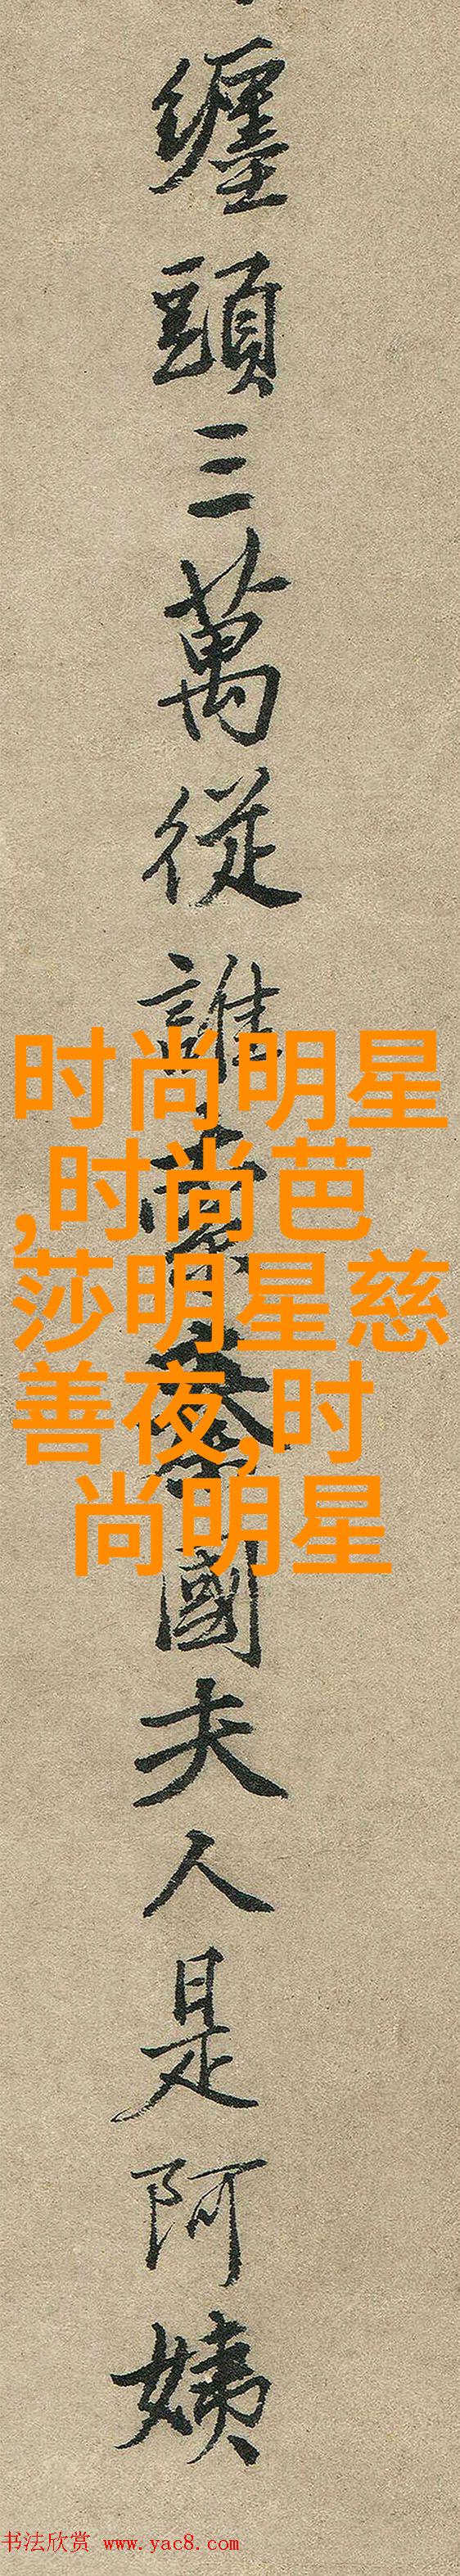 纏頭三萬從誰賞秦國夫人是阿姨
时尚明星
,时尚芭
莎明星慈
善夜,时
尚明星
书法欣赏 www.yac8.com